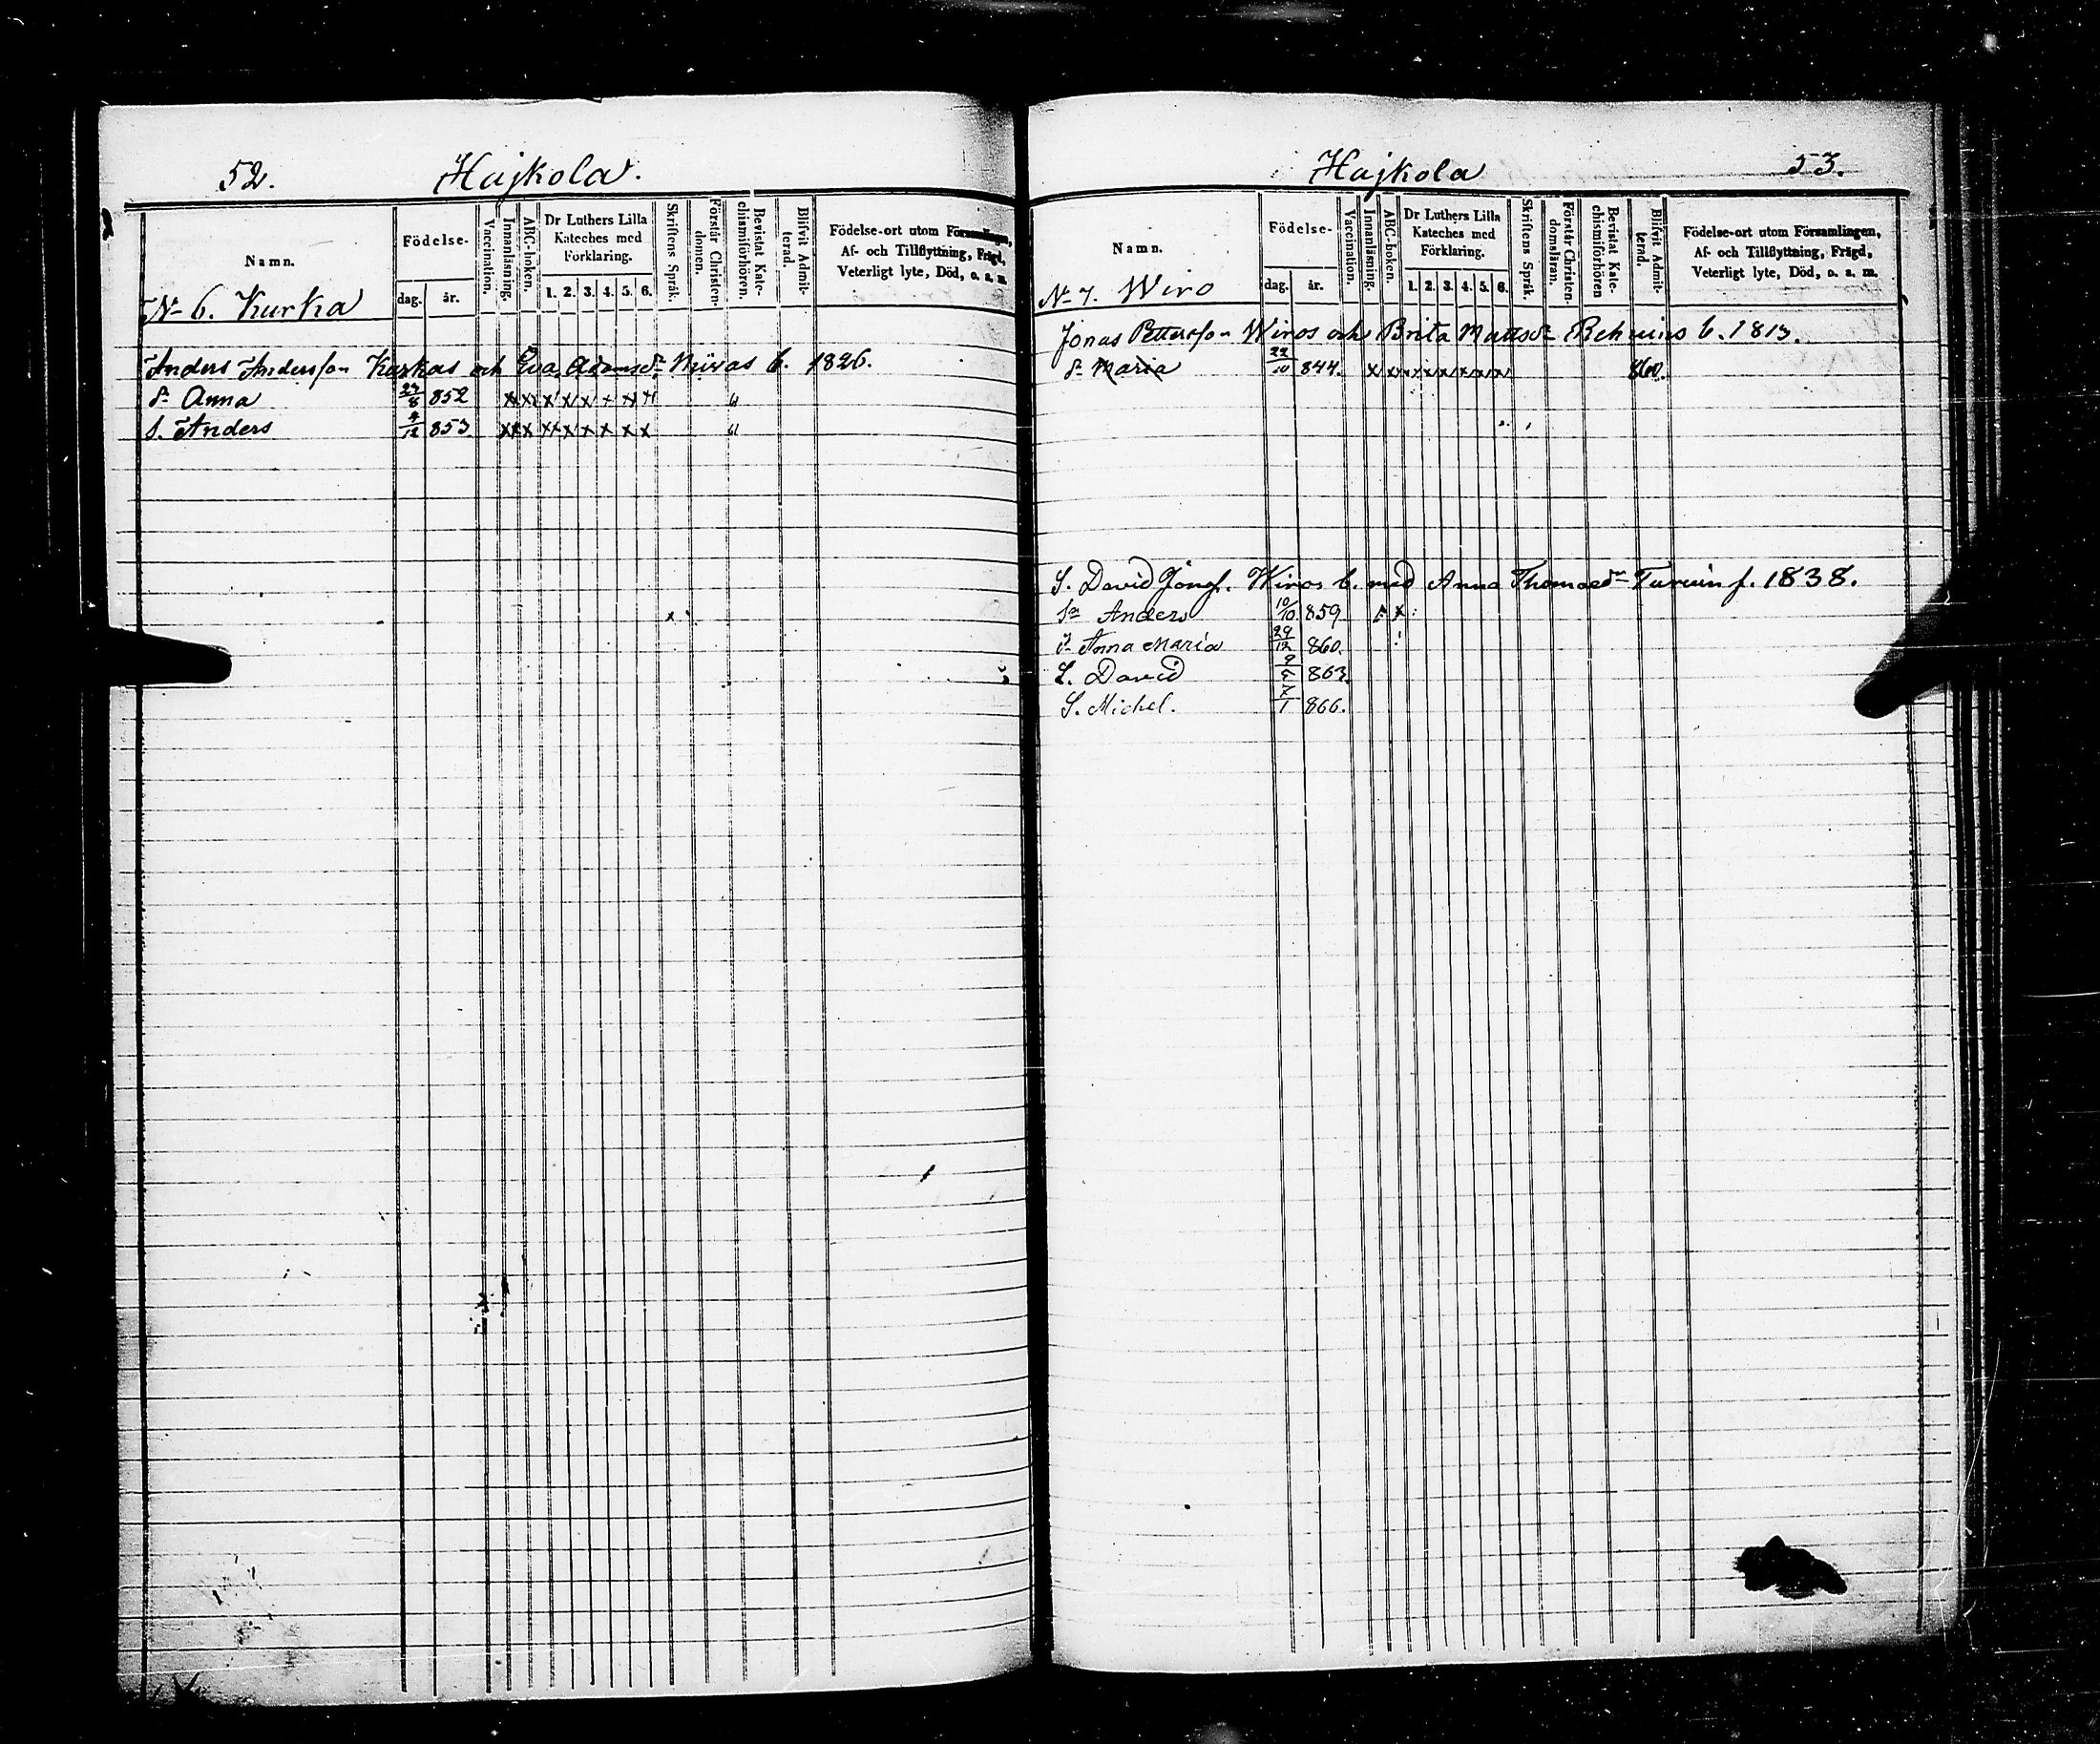 52. Hajkola.
Namn.
Födelse-
dag. år.
Vaccination.
Innanläsning.
ABC-boken.
Dr Luthers Lilla Kateches med Förklaring.
1. 2. 3. 4. 5. 6.
Skriftens Språk.
Förstår Christendomen.
Bevistat Katechismiförhören.
Blifvit Admitterad.
Födelse-ort utom Församlingen,
Af- och Tillflyttning, Frägd,
Veterligt lyte, Död, o. s. m.
N 6. Kurka
Anders Andersson Kurkas och Eva Adamsdr b. 1826.
dr Anna 23/8 852 x x x x x x x x 61
S. Anders 4/12 853. x x x x x x x x x 61
Hajkola 53.
Namn.
Födelse-
dag. år.
Vaccination.
Innanläsning.
ABC-boken.
Dr Luthers Lilla Kateches med Förklaring.
1. 2. 3. 4. 5. 6.
Skriftens Språk.
Förstår Christendomsläran.
Bevistat Katechismiförhören
Blifvit Admitterad.
Födelse-ort utom Församlingen,
Af- och Tillflyttning, Frägd,
Veterligt lyte, Död, o. s. m.
N 7. Wiro
Jonas Pettersson Wiros och Brita Mattsdr b. 1813.
dr Maria 22/10 844. x x x x x x x x 860.
S. David Jonass. Wiros b. med Anna Thomasdr f. 1838.
Sn Anders 10/10 859
dr Anna Maria 29/12 860.
S. David 863.
S. Michel. 866.